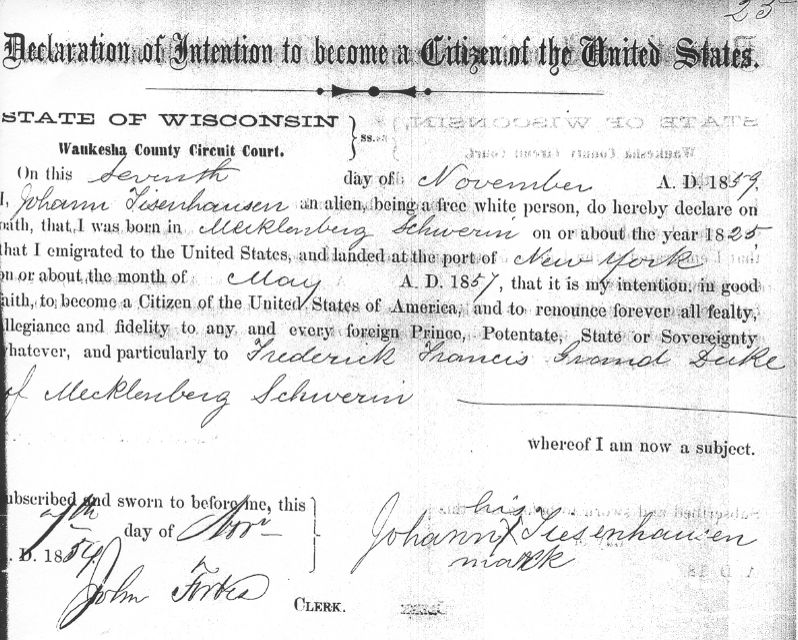 25
Declaration of Intention to become a Citizen of the United States.
STATE OF WISCONSIN
Waukesha County Circuit Court. } ss.
On this Seventh day of November A. D. 1859,
I, Johann Tisenhausen an alien, being a free white person, do hereby declare on
oath, that I was born in Mecklenberg Schwerin on or about the year 1825,
that I emigrated to the United States, and landed at the port of New York
on or about the month of May A. D. 1857, that it is my intention, in good
faith, to become a Citizen of the United States of America, and to renounce forever all fealty,
allegiance and fidelity to any and every foreign Prince, Potentate, State or Sovereignty
whatever, and particularly to Frederick Francis Grand Duke
of Mecklenberg Schwerin
whereof I am now a subject.
Subscribed and sworn to before me, this
7th day of Novr
A. D. 1859
John Forbes CLERK.
his
Johann X Tiesenhausen
mark